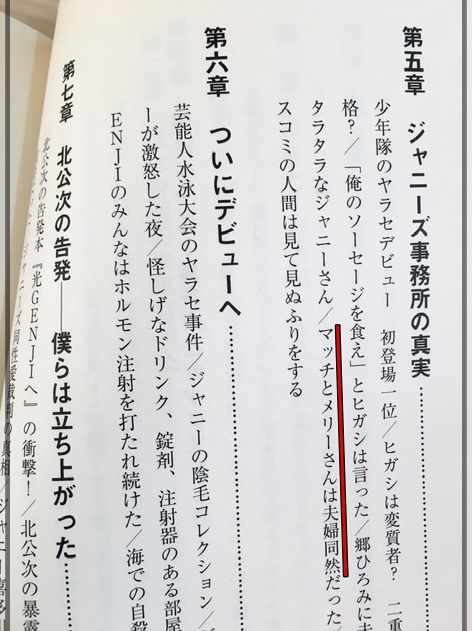 第五章 ジャニーズ事務所の真実
少年隊のヤラセデビュー 初登場一位／ヒガシは変質者? 二重
格?／「俺のソーセージを食え」とヒガシは言った／郷ひろみに未
タラタラなジャニーさん／マッチとメリーさんは夫婦同然だった／
スコミの人間は見て見ぬふりをする
第六章 ついにデビューへ
芸能人水泳大会のヤラセ事件／ジャニーの陰毛コレクション／
ーが激怒した夜／怪しげなドリンク、錠剤、注射器のある部屋
ENJIのみんなはホルモン注射を打たれ続けた／海での自殺
第七章 北公次の告発――僕らは立ち上がった
北公次の告発本『光GENJIへ』の衝撃!／北公次の暴露
ジャニーズ同性愛裁判の真相／ジャニー喜多川